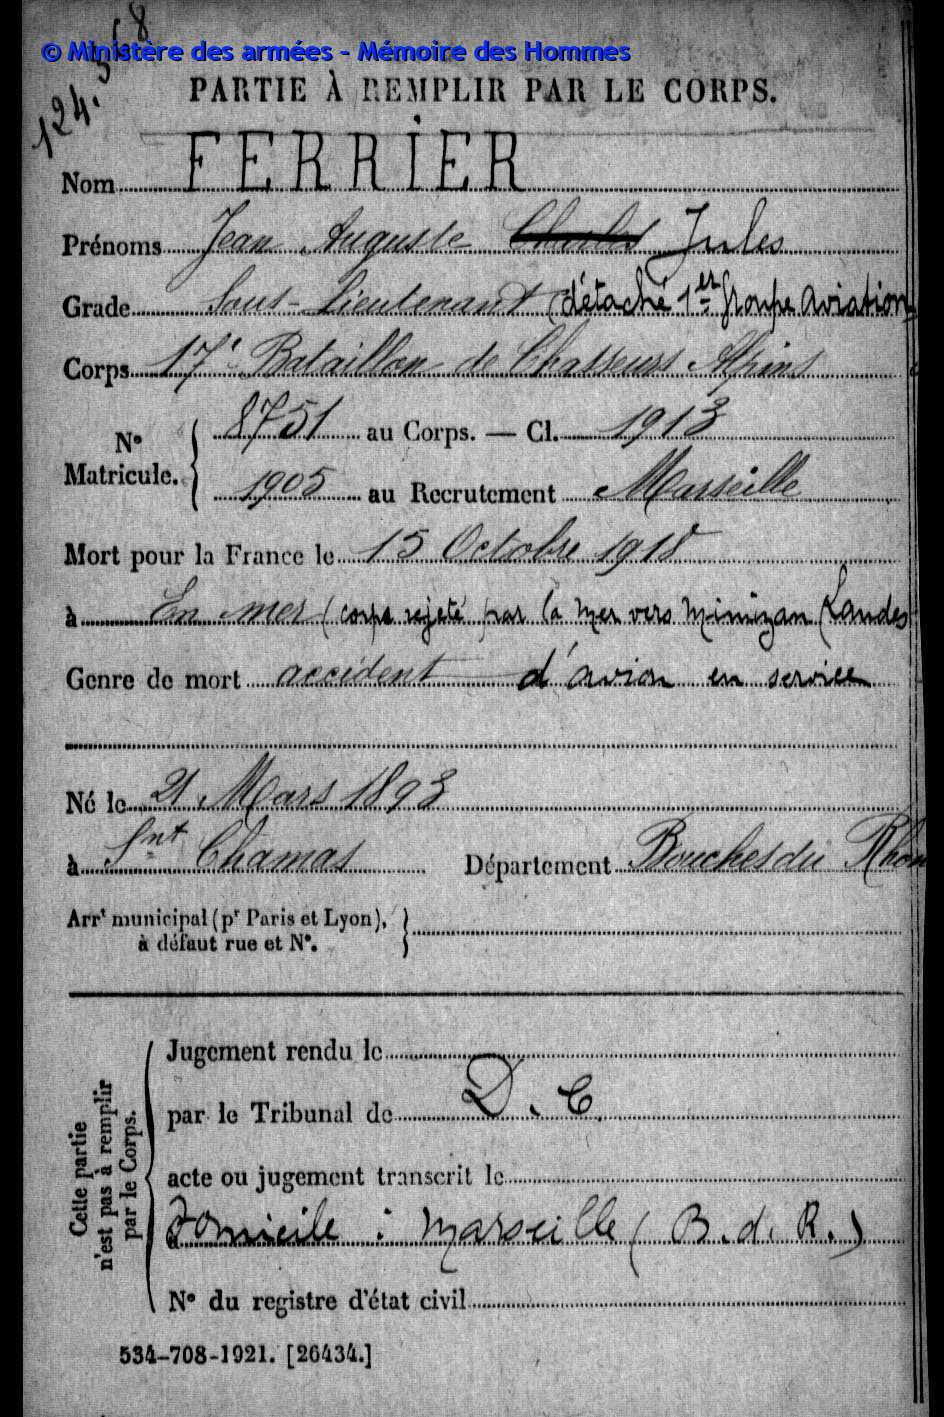 © Ministère des armées - Mémoire des Hommes
124.568
PARTIE À REMPLIR PAR LE CORPS.
Nom FERRIER
Prénoms Jean Auguste Charles Jules
Grade Sous-Lieutenant (détaché 1er Groupe Aviation)
Corps 17e Bataillon de Chasseurs Alpins
N° Matricule. { 8751 au Corps. — Cl. 1913
1905 au Recrutement Marseille
Mort pour la France le 15 Octobre 1918
à En mer (corps rejeté par la mer vers Mimizan (Landes)
Genre de mort accident d'avion en service
Né le 21 Mars 1893
à Snt Chamas Département Bouches du Rhône
Arrt municipal (pr Paris et Lyon), à défaut rue et N°. }
Cette partie n'est pas à remplir par le Corps.
Jugement rendu le
par le Tribunal de D. C.
acte ou jugement transcrit le
à Domicile : Marseille (B. d. R.)
N° du registre d'état civil
534-708-1921. [26434.]